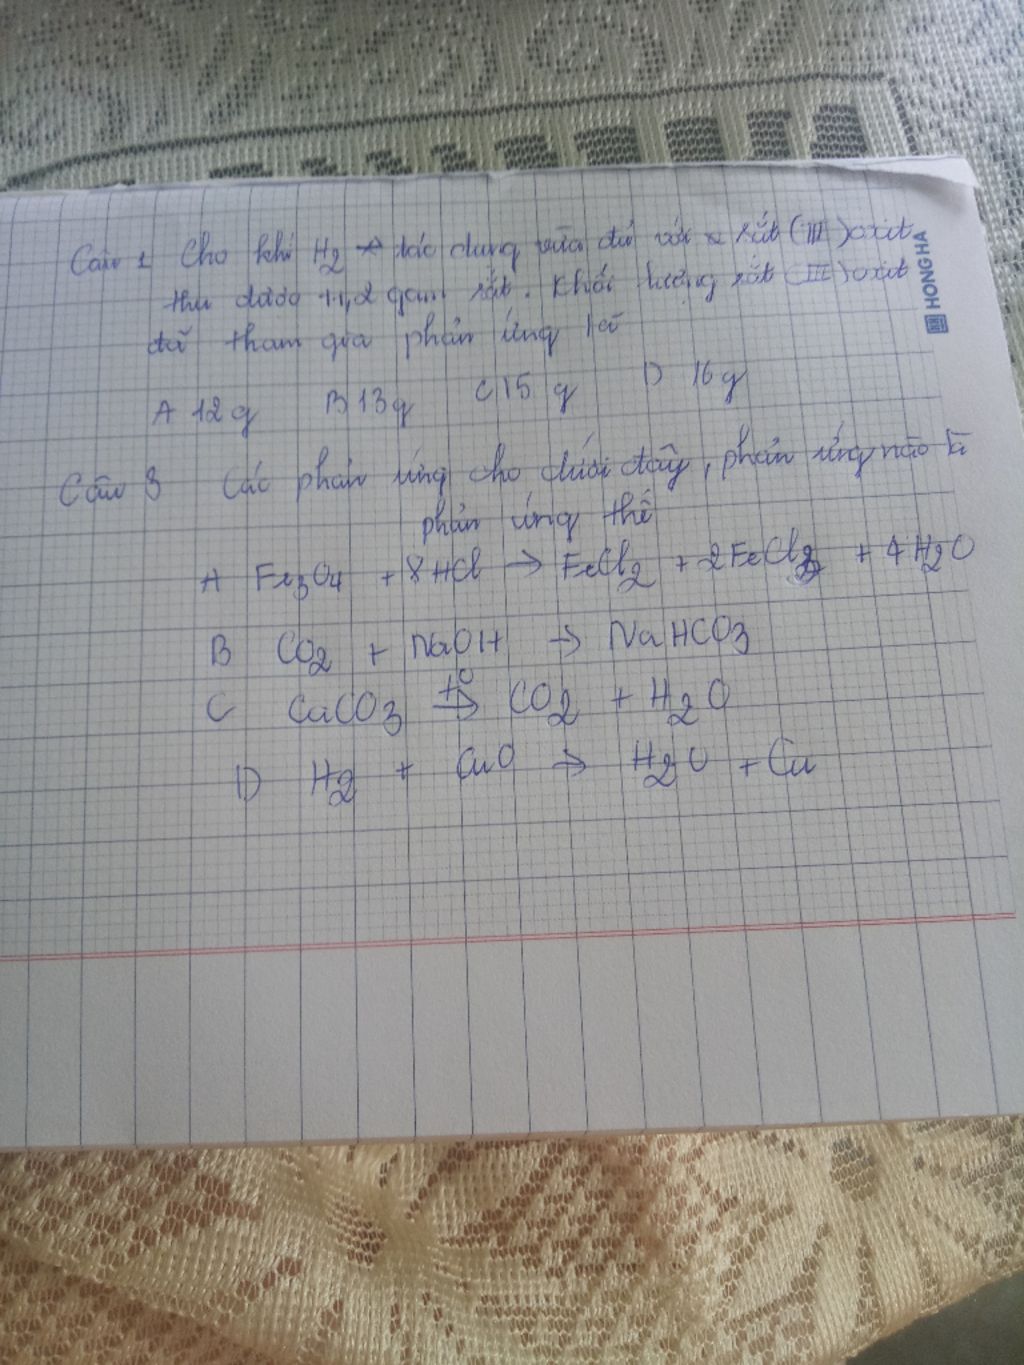 Câu 1 Cho khí H2 tác dụng vừa đủ với sắt (III) oxit
thu được 11,2 gam sắt. Khối lượng sắt (III) oxit
đã tham gia phản ứng là
A 12g B 13g C 15 g D 16g
Câu 3 Các phản ứng cho dưới đây, phản ứng nào là
phản ứng thế
A Fe3O4 + 8HCl → FeCl2 + 2FeCl3 + 4H2O
B CO2 + NaOH → NaHCO3
C CaCO3 t° → CO2 + H2O
D H2 + CuO → H2O + Cu
HONG HA